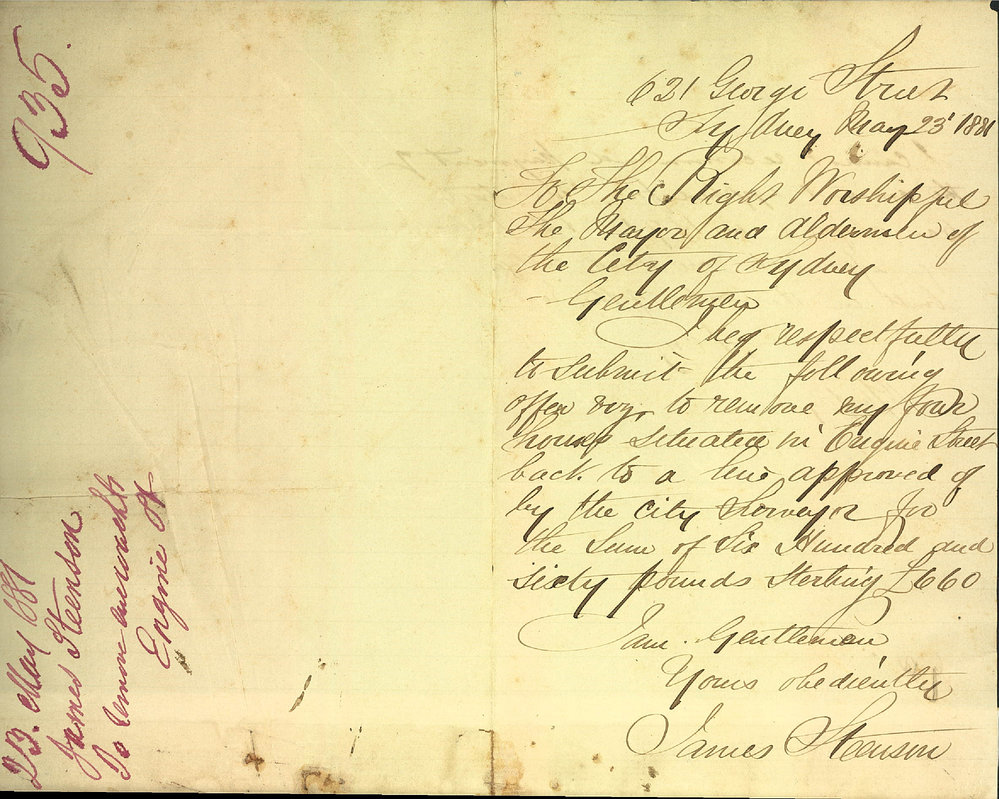 935.
23. May 1881
James Steenson
To remove
Engine St
631 George Street
Sydney May 23 1881
To The Right Worshipful
The Mayor and Aldermen of
the City of Sydney
Gentlemen
I beg respectfully
to submit the following
offer viz, to remove my four
houses situated in Engine Street
back to a line approved of
by the City Surveyor for
the Sum of Six Hundred and
Sixty pounds Sterling £660
I am Gentlemen
Yours obediently
James Steenson